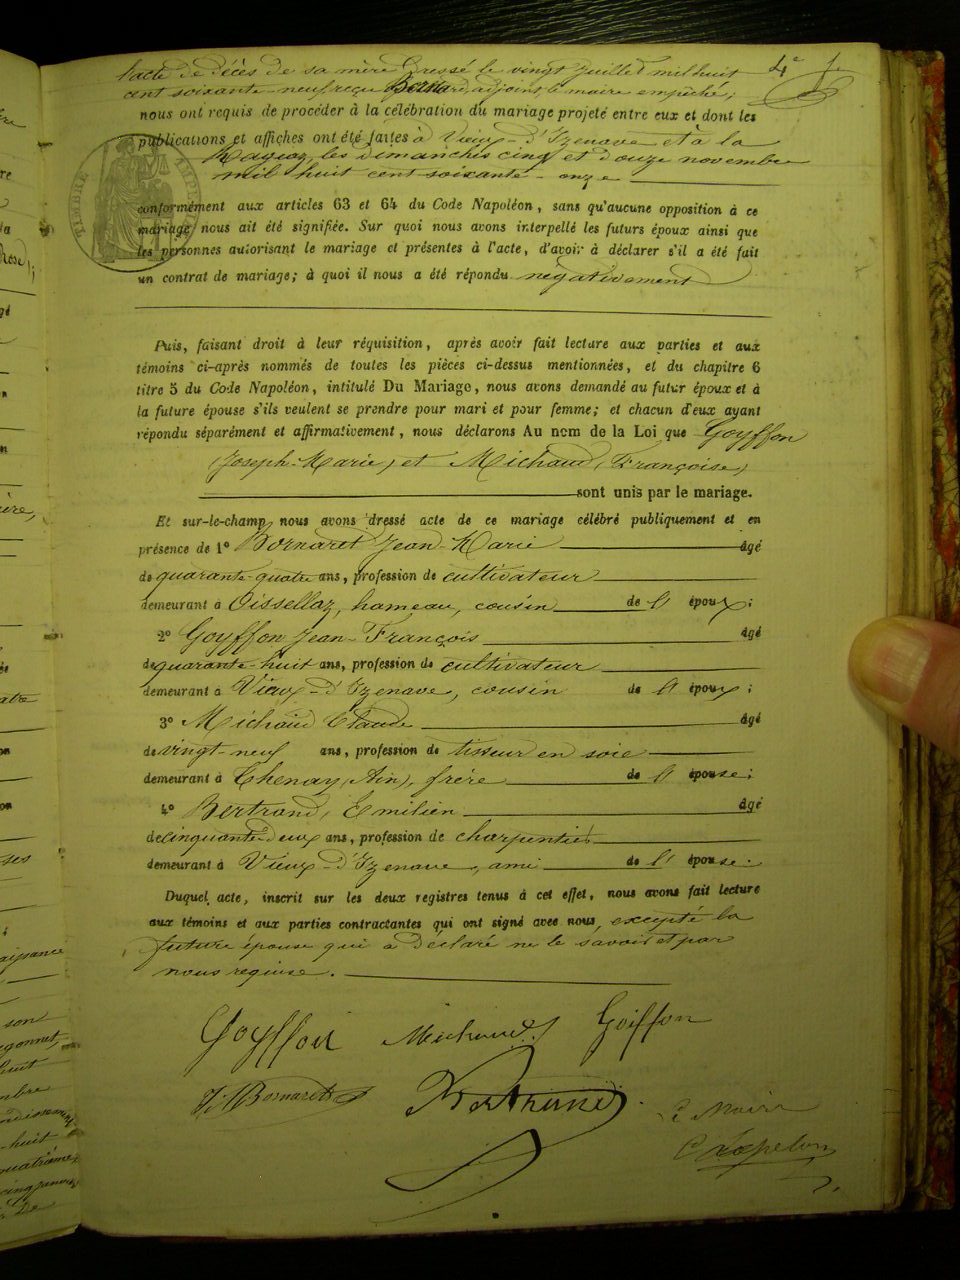 l'acte de décès de sa mère dressé le vingt juillet mil huit
4e f.
cent soixante-neuf reçu adjoint, le maire empêché;
nous ont requis de procéder à la célébration du mariage projeté entre eux et dont les
publications et affiches ont été faites à Vieux-d'Izenave et à la
les dimanches cinq et douze novembre
mil huit cent soixante-onze
TIMBRE IMPERIAL
conformément aux articles 63 et 64 du Code Napoléon, sans qu'aucune opposition à ce
mariage nous ait été signifiée. Sur quoi nous avons interpellé les futurs époux ainsi que
les personnes autorisant le mariage et présentes à l'acte, d'avoir à déclarer s'il a été fait
un contrat de mariage; à quoi il nous a été répondu négativement
Puis, faisant droit à leur réquisition, après avoir fait lecture aux parties et aux
témoins ci-après nommés de toutes les pièces ci-dessus mentionnées, et du chapitre 6
titre 5 du Code Napoléon, intitulé Du Mariage, nous avons demandé au futur époux et à
la future épouse s'ils veulent se prendre pour mari et pour femme; et chacun d'eux ayant
répondu séparément et affirmativement, nous déclarons Au nom de la Loi que Goyffon
(Joseph-Marie) et Michaud (Françoise)
sont unis par le mariage.
Et sur-le-champ nous avons dressé acte de ce mariage célébré publiquement et en
présence de 1° Bornaret Jean-Marie âgé
de quarante-quatre ans, profession de cultivateur
demeurant à Oissellaz, hameau, cousin de l' époux;
2° Goyffon Jean-François âgé
de quarante-huit ans, profession de cultivateur
demeurant à Vieux-d'Izenave, cousin de l' époux;
3° Michaud Claude âgé
de vingt-neuf ans, profession de tisseur en soie
demeurant à Chenay (Ain), frère de l' épouse;
4° Bertrand, Emilien âgé
de cinquante deux ans, profession de charpentier
demeurant à Vieux-d'Izenave, ami de l' épouse.
Duquel acte, inscrit sur les deux registres tenus à cet effet, nous avons fait lecture
aux témoins et aux parties contractantes qui ont signé avec nous, excepté la
future épouse qui a déclaré ne le savoir et par
nous requise.
Goyffon Michaud Goiffon
J M Bornaret Bertrand Le Maire